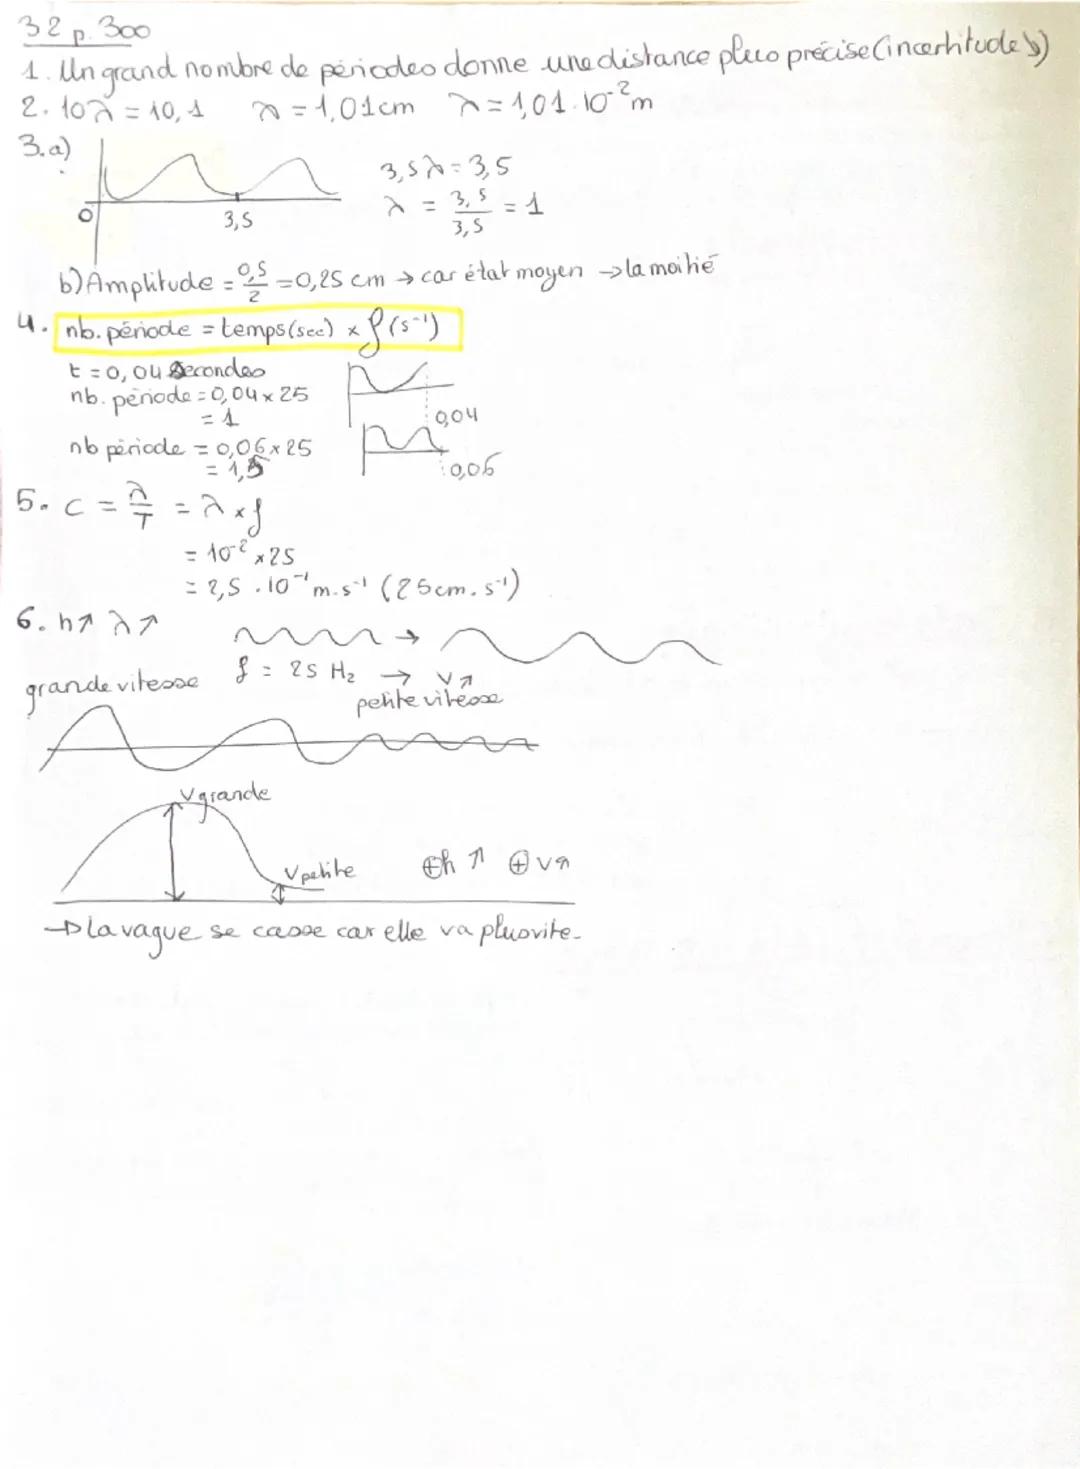 32 p. 300
1. Un grand nombre de périodes donne une distance plus précise (incertitude ↘)
2. 10λ = 10,1 λ = 1,01 cm λ = 1,01.10⁻² m
3.a)
3,5λ = 3,5
λ = 3,5/3,5 = 1
0 3,5
b) Amplitude = 0,5/2 = 0,25 cm → car état moyen → la moitié
4. nb. période = temps(sec) × f (s⁻¹)
t = 0,04 secondes
nb. période = 0,04 × 25
= 1
0,04
nb période = 0,06 × 25
= 1,5
0,06
5. c = λ/T = λ × f
= 10⁻² × 25
= 2,5 . 10⁻¹ m.s⁻¹ (25 cm.s⁻¹)
6. h↗ λ↗ →
f = 25 Hz → v↗
grande vitesse petite vitesse
V grande
V petite ⊕h ↗ ⊕v↗
→ La vague se casse car elle va plus vite.